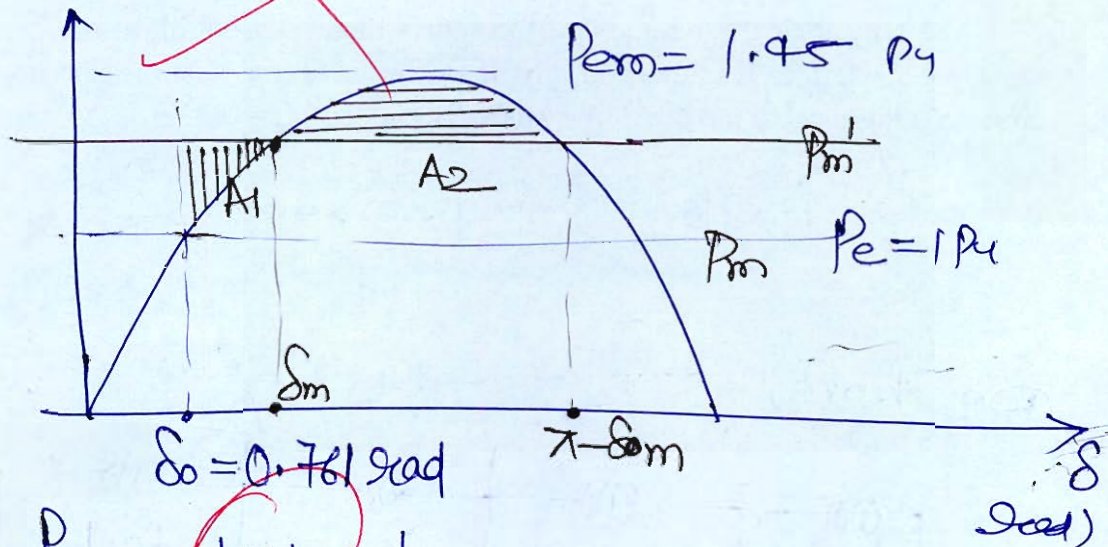 Pem = 1.45 Pu
Pm'
A1
A2
Pm
Pe = 1 Pu
δm
δo = 0.761 rad
π-δom
δ
rad)